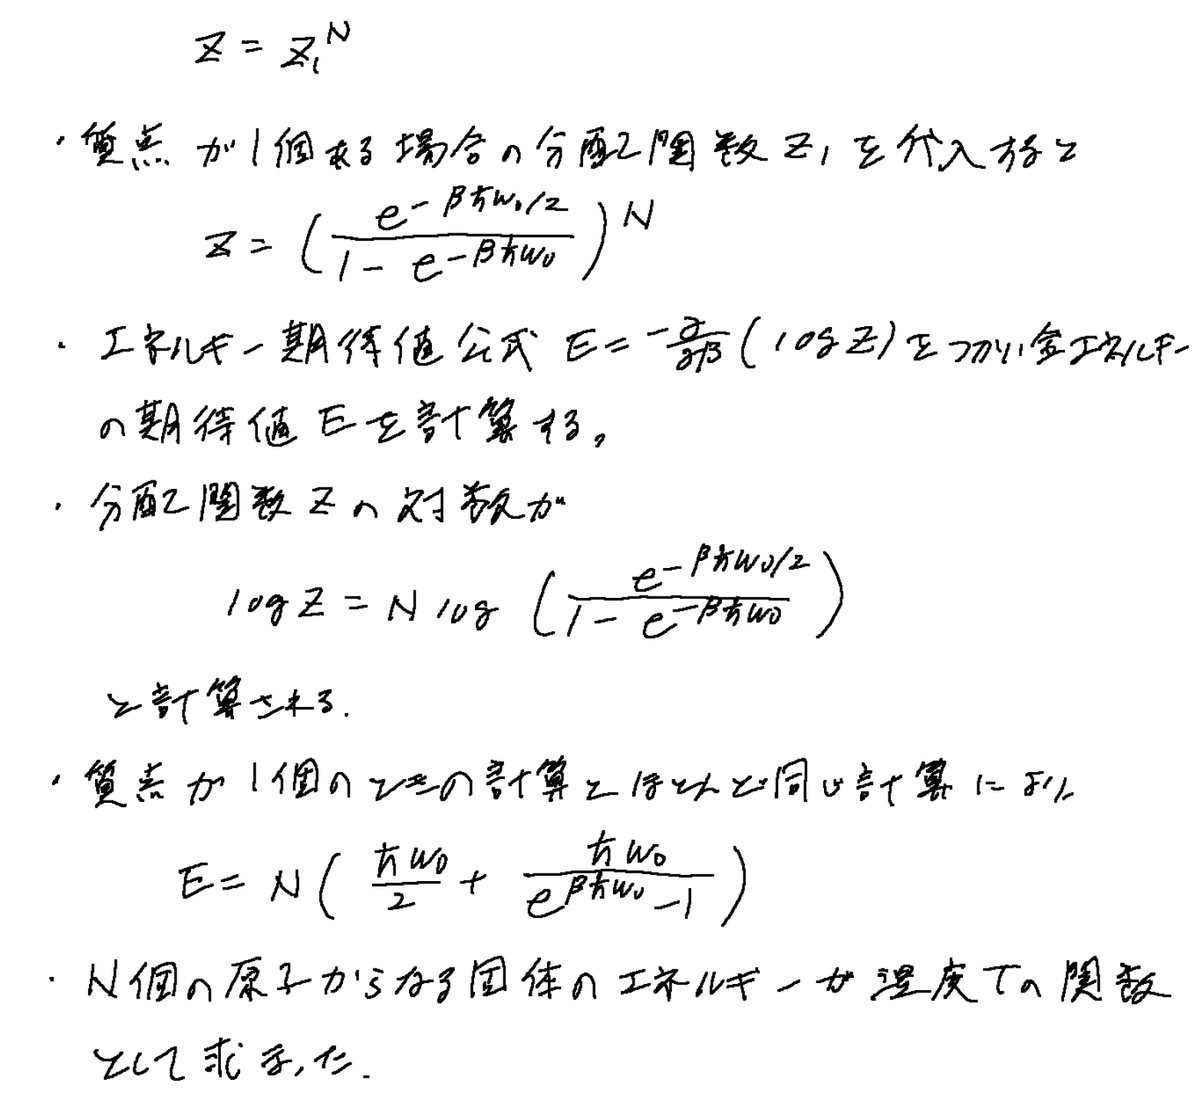 Z = Z₁ᴺ
・質点が1個ある場合の分配関数Z₁を代入すると
Z = (e^{-βℏω₀/2} / (1 - e^{-βℏω₀}))^N
・エネルギー期待値公式 E = -∂/∂β (log Z) をつかい全エネルギー
の期待値Eを計算する。
・分配関数Zの対数が
log Z = N log (e^{-βℏω₀/2} / (1 - e^{-βℏω₀}))
と計算される.
・質点が1個のときの計算とほとんど同じ計算により
E = N(ℏω₀/2 + ℏω₀/(e^{βℏω₀} - 1))
・N個の原子からなる固体のエネルギーが温度Tの関数
として求まった.